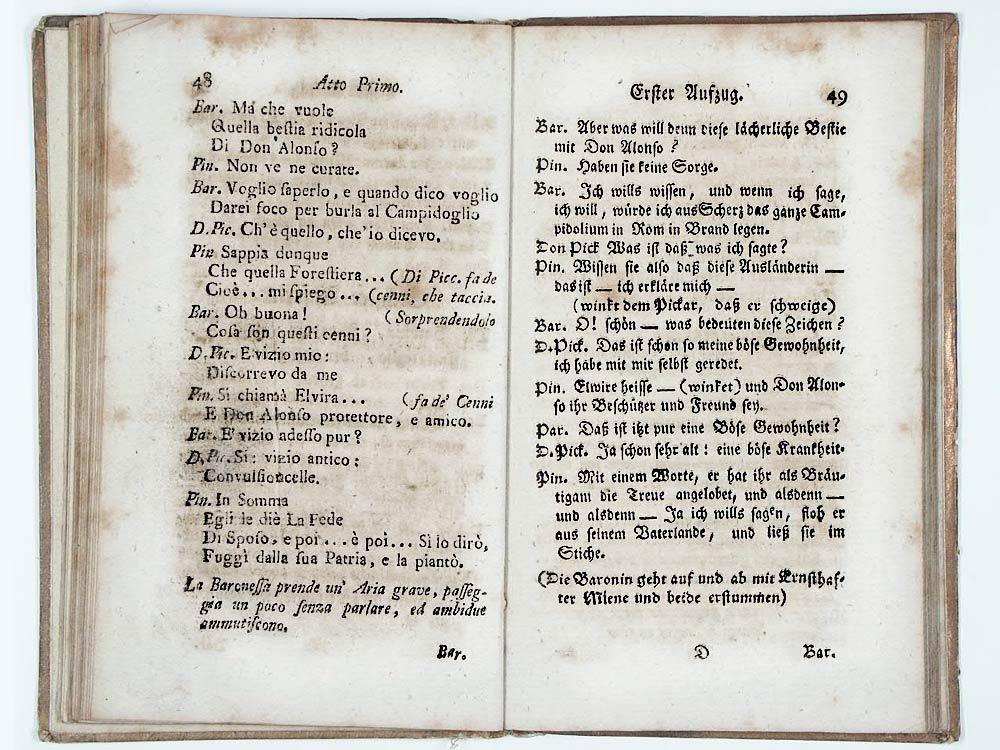 48 Atto Primo.
Bar. Ma che vuole
Quella beſtia ridicola
Di Don Alonſo?
Pin. Non ve ne curate.
Bar. Voglio ſaperlo, e quando dico voglio
Darei foco per burla al Campidoglio
D. Pic. Ch' è quello, che' io dicevo.
Pin Sappia dunque
Che quella Foreſtiera... (Di Picc. fa de
Cioè... mi ſpiego... (cenni, che taccia.
Bar. Oh buona! (Sorprendendolo
Coſa ſon queſti cenni?
D. Pic. E vizio mio:
Diſcorrevo da me
Pin. Si chiama Elvira... (fa de' Cenni
E Don Alonſo protettore, e amico.
Bar. E' vizio adeſſo pur?
D. Pic. Si: vizio antico:
Convulſioncelle.
Pin. In Somma
Egli le diè La Fede
Di Spoſo, e poi... è poi... Si lo dirò,
Fuggì dalla ſua Patria, e la piantò.
La Baroneſſa prende un' Aria grave, paſſeg-
gia un poco ſenza parlare, ed ambidue
ammutiſcono.
Bar.
Erſter Aufzug. 49
Bar. Aber was will denn dieſe lächerliche Beſtie
mit Don Alonſo?
Pin. Haben ſie keine Sorge.
Bar. Ich wills wiſſen, und wenn ich ſage,
ich will, würde ich aus Scherz das ganze Cam-
pidolium in Rom in Brand legen.
Don Pick Was iſt daß was ich ſagte?
Pin. Wiſſen ſie alſo daß dieſe Ausländerin —
das iſt — ich erkläre mich —
(winkt dem Pickar, daß er ſchweige)
Bar. O! ſchön — was bedeuten dieſe Zeichen?
D. Pick. Das iſt ſchon ſo meine böſe Gewohnheit,
ich habe mit mir ſelbſt geredet.
Pin. Elwire heiſſe — (winket) und Don Alon-
ſo ihr Beſchützer und Freund ſey.
Par. Daß iſt itzt pur eine Böſe Gewohnheit?
D. Pick. Ja ſchon ſehr alt: eine böſe Krankheit.
Pin. Mit einem Worte, er hat ihr als Bräu-
tigam die Treue angelobet, und alsdenn —
und alsdenn — Ja ich wills ſagen, floh er
aus ſeinem Vaterlande, und ließ ſie im
Stiche.
(Die Baronin geht auf und ab mit Ernſthaf-
ter Miene und beide erſtummen)
D Bar.